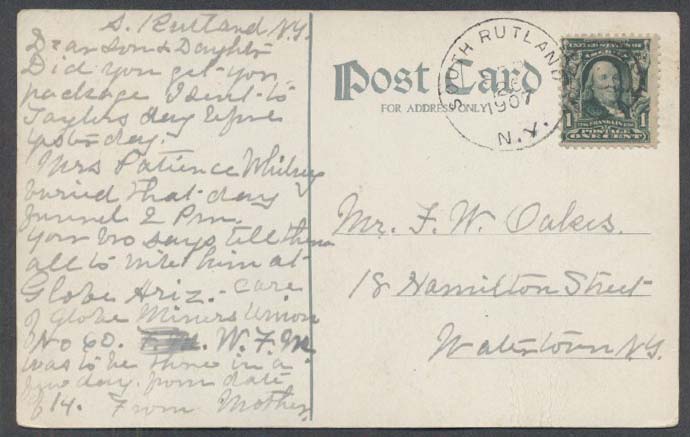 S. Rutland N.Y.
Dear Son & Daughter
Did you get you
package I sent to
Taylors day before
yesterday.
Mrs Patience Whitney
buried that day
funnel 2 Pm.
Your bro says tell them
all to write him at
Globe Ariz. - care
of Globe Miners Union
No 60. W. F. M.
was to be there in a
few day from date
14. From Mother
Post Card
FOR ADDRESS ONLY
SOUTH RUTLAND
1907
N.Y.
1 1
FRANKLIN
POSTAGE
ONE CENT
Mr. F. W. Oakes.
18 Hamilton Street
Watertown N.Y.